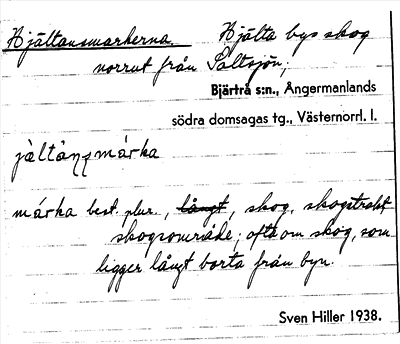 Hjältansmarkerna. Hjälta bys skog
norrut från Saltsjön;
Bjärtrå s:n., Ångermanlands
södra domsagas tg., Västernorrl. l.
jàltànsmárka
márka best. plur., långt, skog, skogstrakt,
skogsområde; ofta om skog, som
ligger långt borta från byn.
Sven Hiller 1938.